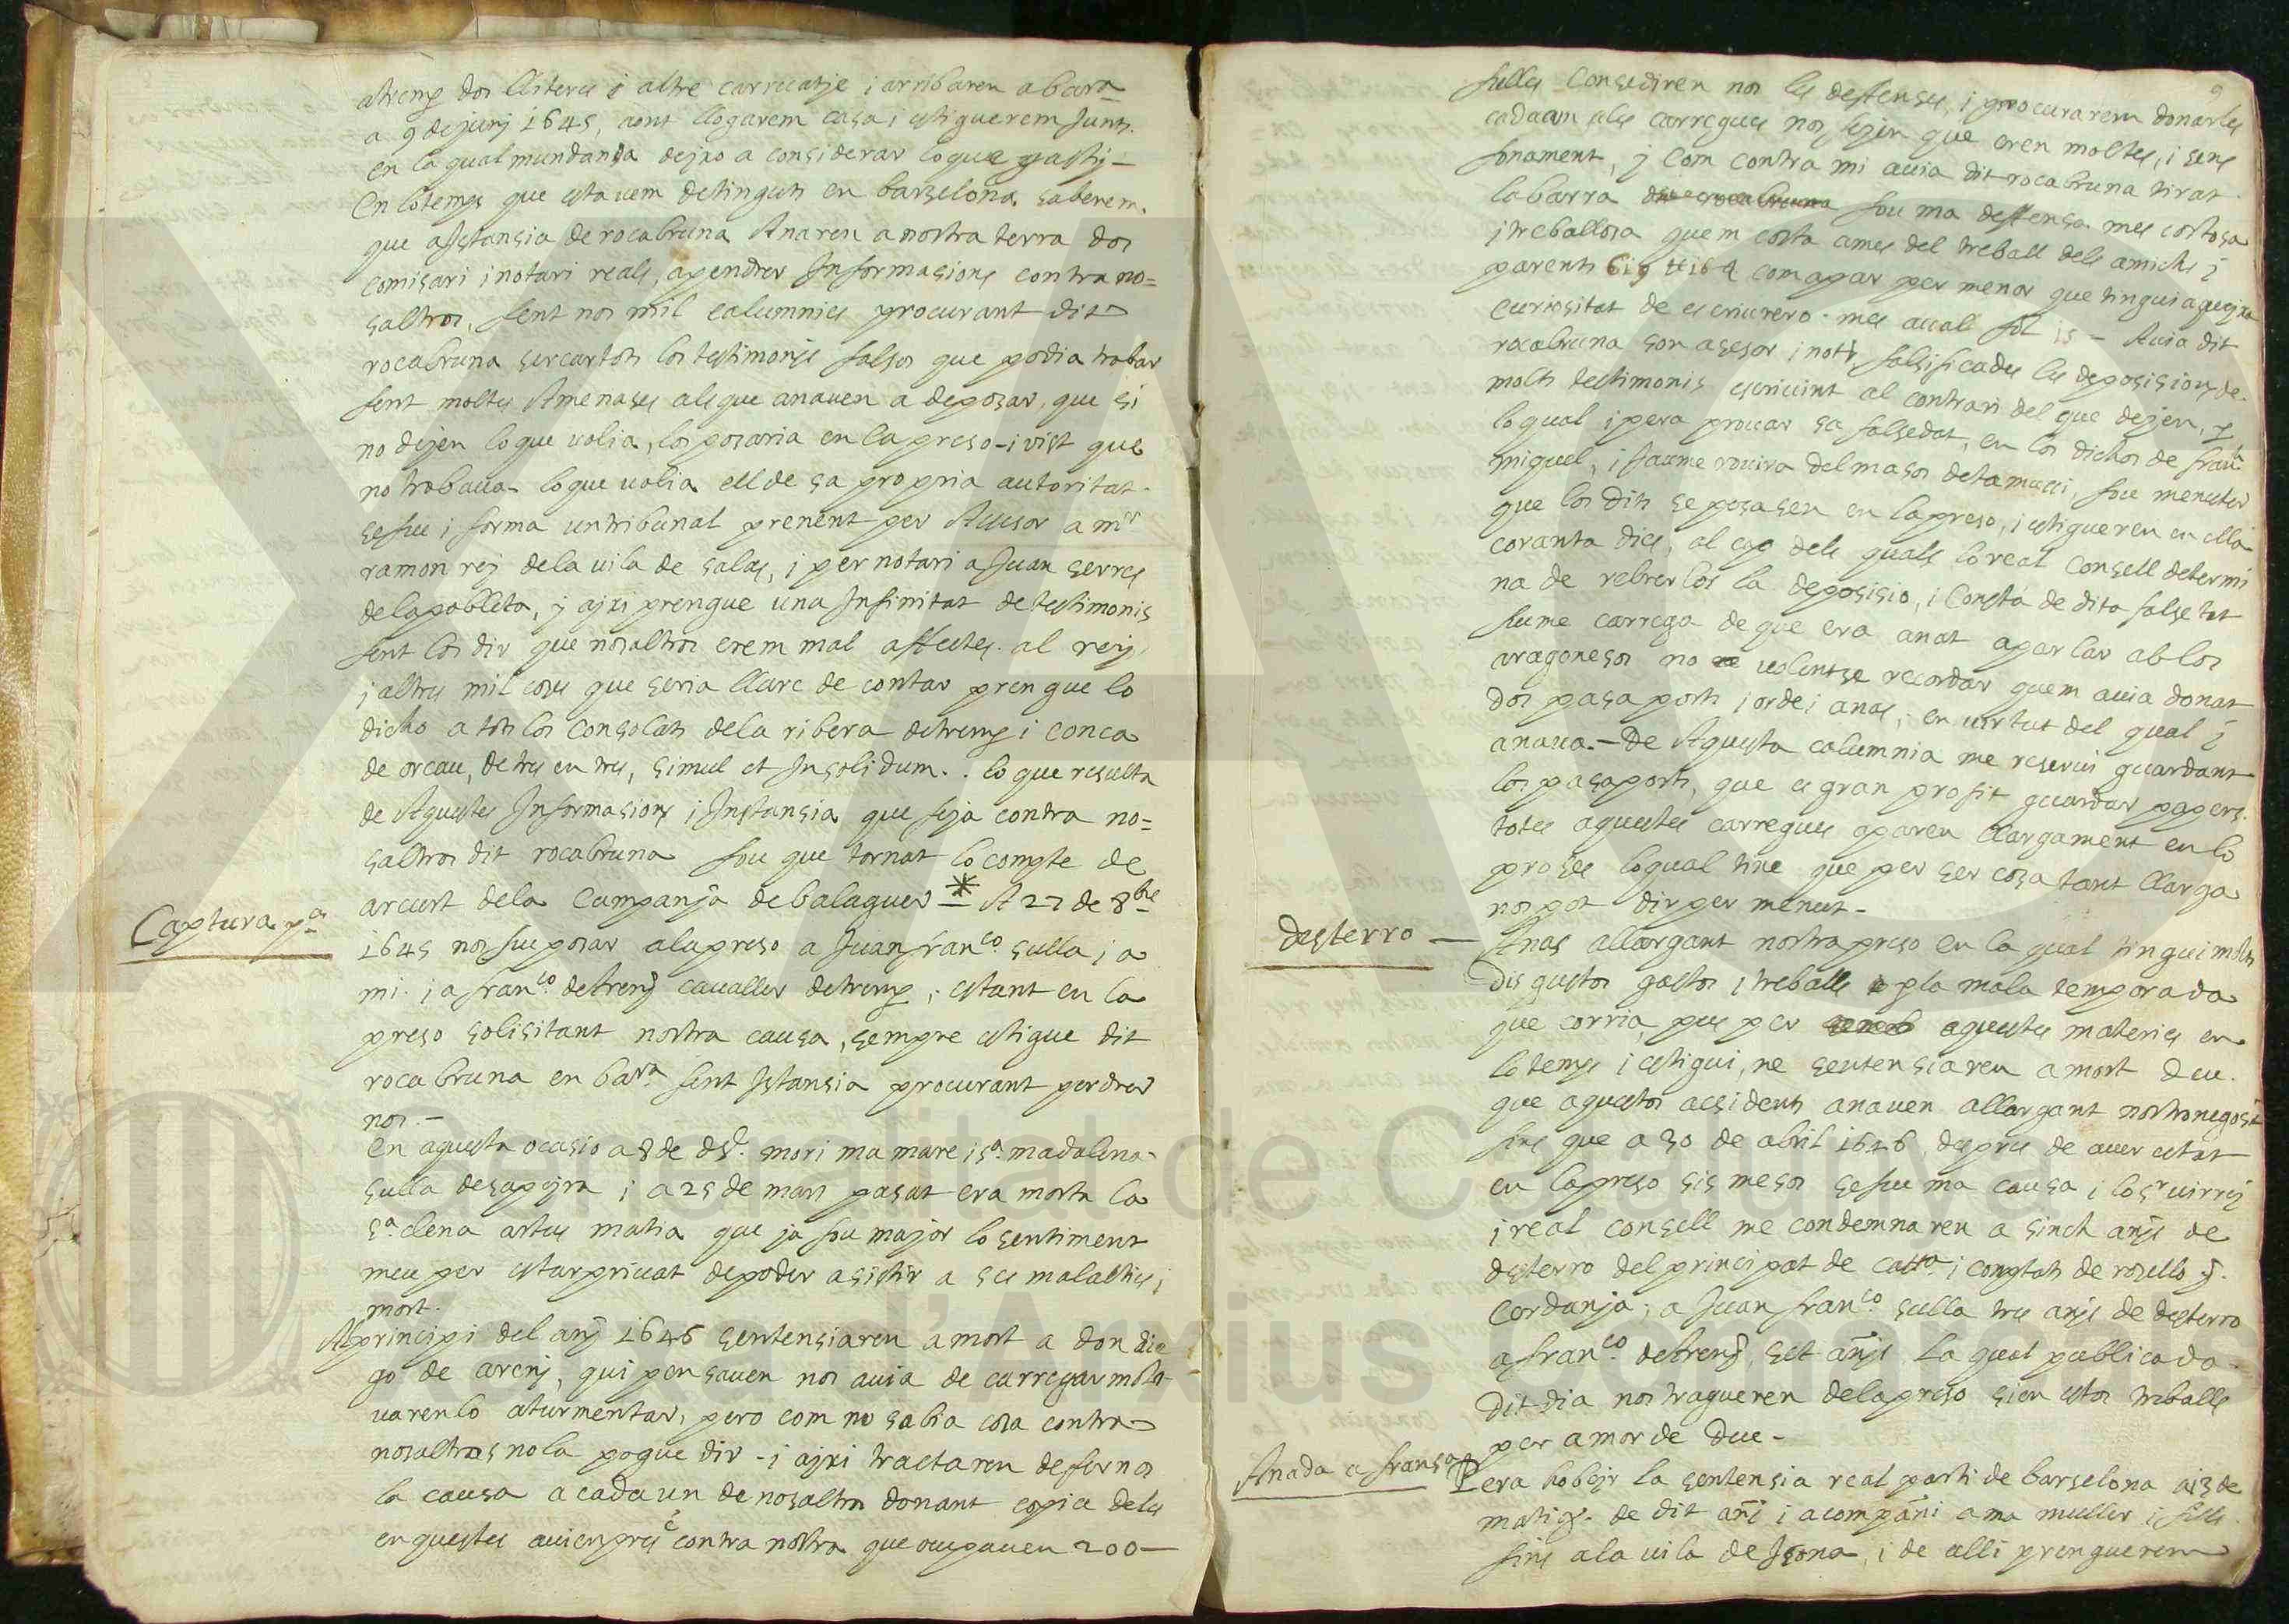 atremp dos lliteres i altre carruatje i arribaren a bar.na
a 9 de junj 1645, aont llogarem casa i estiguerem Junts.
en la qual mundansa dejxo a considerar lo que gastj –
En lo temps que estavem detinguts en barselona saberem.
que a Jstansia de rocabruna Anaren a nostra terra dos
comisari i notari reals, apendrer Jnformasions contra no=
saltros, fent nos mil calumnies procurant dit
rocabruna sercar tots los testimonis falsos que podia trobar
fent moltes Amenases als que anaven a deposar, que si
no dejen lo que volia, los posaria en la preso – i vist que
no trobava lo que volia ell de sa propria autoritat.
se feu i forma un tribunal prenent per Assesor a m.r
ramon rej de la vila de salas, i per notari a Juan serres
de la pobleta, j ajxi prengue una Jnfinitat de testimonis
fent los dir que nosaltros erem mal affectes. al rej,
i altres mil coses que seria llarc de contar prengue lo
dicho a tots los consolats de la ribera de tremp i conca
de orcau, de tres en tres, simul et Jnsolidum. . lo que resulta
de Aquestes Jnformasions i Jnstansia que feja contra no=
saltros dit rocabruna fou que tornat lo compte de
arcurt de la Campanja de balaguer * – A 27 de 8bre
Captura p.a
1645 nos feu posar a la preso a Juan fran.co sulla i a
mi. i a fran.co de trenj cavaller de tremp, i estant en la
preso solisitant nostra causa, sempre estigue dit
rocabruna en bar.na fent Jstansia procurant perdrer
nos. –
En aquesta ocasio a 8 de d.e. mori ma mare i s.a madalena
sulla desapejra i a 25 de mars pasat era morta la
s.a elena artes matia que ja fou major lo sentiment
meu per estar privat de poder asistir a ses malalties i
mort.
Al prinsipi del anj 1646 sentensiaren a mort a don die
go de arenj, qui pensaven nos avia de carregar molt
varenlo aturmentar, pero com no sabia cosa contra
nosaltros no la pogue dir – i ajxi tractaren de fernos
la causa a cada un de nosaltros donant copia de les
enquestes avien pres contra nostra que ocupaven 200 –
9
fulles Consediren nos les deffenses, i procurarem donarles
cada un als carregues nos fejen que eren moltes, i sens
fonament, j com contra mi avia dit rocabruna tirat
la barra fou ma deffensa mes costosa
i treballosa quem costa a mes del treball dels amichs i
parents com apar per menor que tingui aquejxa
curiositat de escriurero. mes avall fol 15 – Avia dit
rocabruna son asesor i not.ri falsificades les deposisions de.
molts testimonis escrivint al contrari del que dejen, p.
lo qual i pera provar sa falsedat, en los dichos de fran.ch
miquel, i Jaume rovira del masos de tamursi, fou menester
que los dits se posasen en la preso, i estigueren en ella
coranta dies, al cap dels quals lo real consell determi
na de rebrer los la deposisio, i consta de dita falsetat
feume carrega de que era anat a parlar ab los
aragonesos no volentse recordar quem avia donat
dos pasaports i orde i anas, i en virtut del qual j
anava. – De Aquesta calumnia me reservi guardant
los pasaports, que es gran profit guardar papers.
totes aquestes carregues aparen llargament en lo
proses lo qual tinc que per ser cosa tant llarga
nos pot dir per menut –
desterro –
Anas allargant nostra preso en la qual tingui molts
disgustos gastos i treballs p la mala temporada
que corria, pus per aquestes materies en
lo temps i estigui, ne sentensiaren a mort deu.
que aquestos acsidents anaven allargant nostro negosi
fins que a 30 de abril 1646, despres de aver estat
en la preso sis mesos se feu ma causa i lo s.r virrej
i real consell me condemnaren a sinch anjs de
desterro del prinsipat de cat.na i comptats de rosello j.
cerdanja, a Juan fran.co sulla tres anjs de desterro
a fran.co de trenj, set anjs La qual publicada.
dit dia nos tragueren de la preso sien estos treballs
per amor de Deu –
Anada a fransa
Pera hobejr la sentensia real parti de barselona a 13 de
matig. de dit anj i acompanji a ma muller i fills
fins a la vila de Jsona, i de alli prenguerem